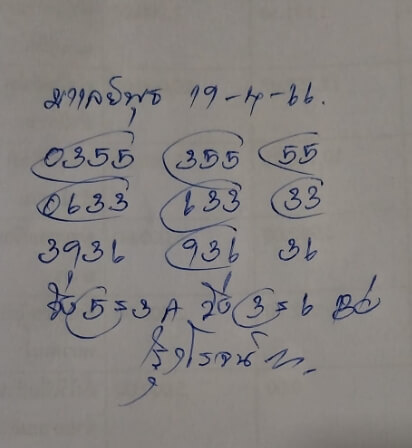 มาเลย์พุธ 19-4-66.
0355 355 55
0633 633 33
3936 936 36
วิ่ง 5 = 3 ตัว วิ่ง 3 = 6
รุ่งโรจน์